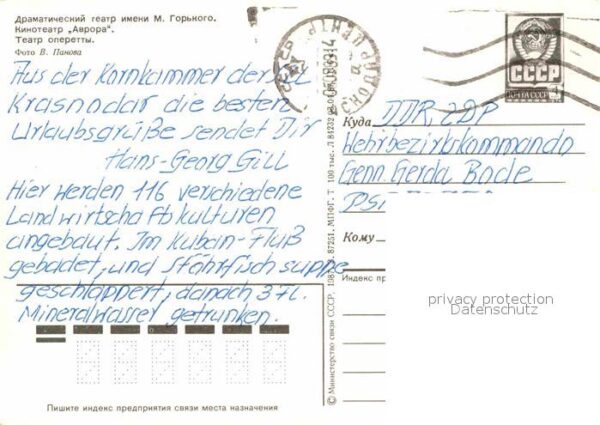 Драматический театр имени М. Горького.
Кинотеатр „Аврора“.
Театр оперетты.
Фото В. Панова
Aus der Kornkammer der SU
Krasnodar die besten
Urlaubsgrüße sendet Dir
Hans-Georg Gill
Hier werden 116 verschiedene
Landwirtschaftskulturen
angebaut. Im Kuban-Fluß
gebadet, und Störfischsuppe
geschlappert, danach 3 Fl.
Mineralwasser getrunken.
Пишите индекс предприятия связи места назначения
© Министерство связи СССР. 1981 З. 87251. МПФГ. Т. 100 тыс.
СССР
ПОЧТА СССР
Куда DDR ZDP
Wehrbezirkskommando
Genn. Gerda Bode
PSF
Кому
Индекс
privacy protection
Datenschutz